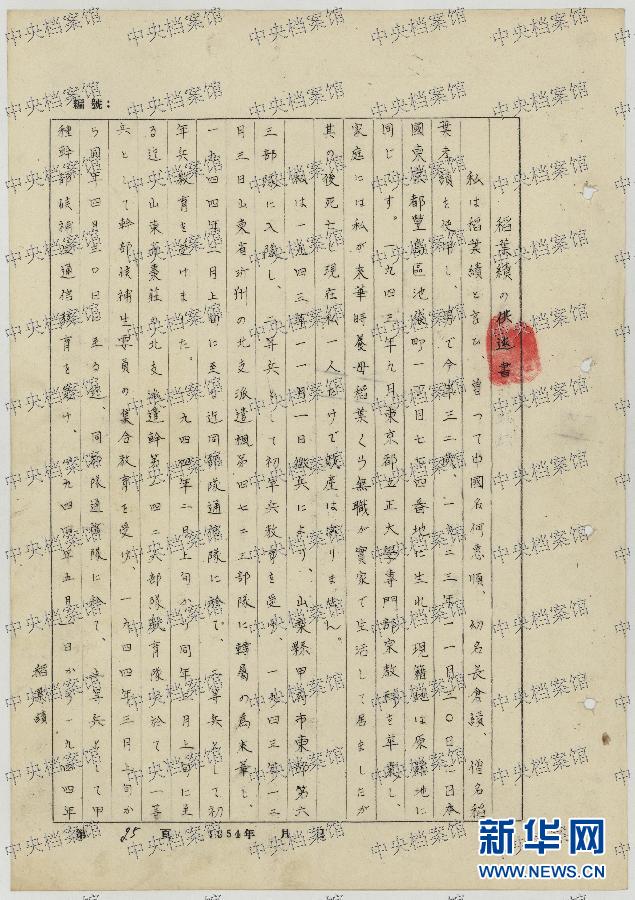 編號：
稲葉績の供述書
私は稲葉績と言ひ、曽つて中國名何意順、幼名長倉績、僧名稲
葉孝績を使用し、男で今年三二歳、一九二三年一一月三〇日に日本
國東京都豐島區池袋町一丁目七七四番地に生れ、現籍地は原籍地に
同じです。一九四三年九月東京都立正大學専門部宗教科を卒業し、
家庭には私が来華時養母稲葉くら無職が實家で生活して居ましたが
其の後死亡し現在私一人だけで財産は有りません。
私は一九四三年一一月一日徴兵により、山梨縣甲府市東部第六
三部隊に入隊し、二等兵として初年兵教育を受け、一九四三年一二
月三日山東省 州の北支派遣 第四七二三部隊に轉属の為来華し、
一九四四年二月上旬に至る迄同部隊通信隊に於て、二等兵として初
年兵教育を受けました。一九四四年二月上旬から同年三月上旬に至
る迄山東省棗荘の北支派遣 第一四二兵部隊教育隊に於て一等
兵として幹部候補生要員の集合教育を受け、一九四四年三月上旬か
ら同年四月三〇日に至る迄、同部隊通信隊に於て、上等兵として甲
種幹部候補生通信教育を受け、一九四四年五月一日から一九四四年
稲葉績
第 25 頁 1954年 月 日
中央档案馆
新华网
WWW.NEWS.CN